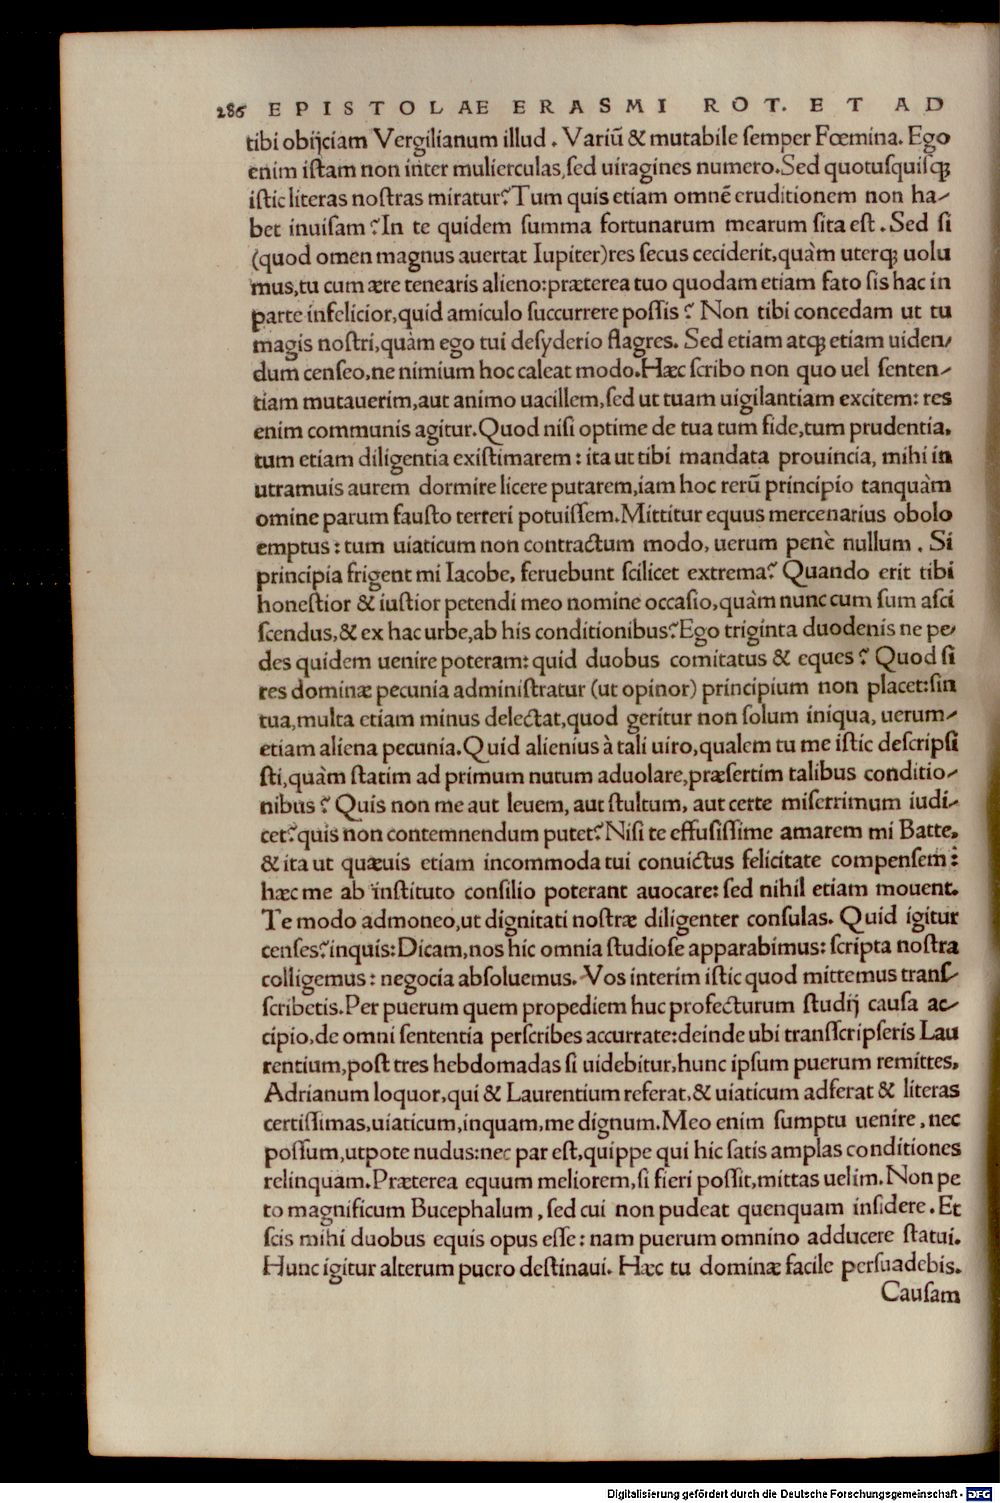 286 EPISTOLAE ERASMI ROT. ET AD
tibi obijciam Vergilianum illud. Variũ & mutabile ſemper Fœmina. Ego
enim iſtam non inter mulierculas, ſed uiragines numero. Sed quotuſquiſq;
iſtic literas noſtras miratur? Tum quis etiam omnẽ eruditionem non ha-
bet inuiſam? In te quidem ſumma fortunarum mearum ſita eſt. Sed ſi
(quod omen magnus auertat Iupiter) res ſecus ceciderit, quàm uterq; uolu
mus, tu cum ære tenearis alieno: præterea tuo quodam etiam fato ſis hac in
parte infelicior, quid amiculo ſuccurrere poſſis? Non tibi concedam ut tu
magis noſtri, quàm ego tui deſyderio flagres. Sed etiam atq; etiam uiden-
dum cenſeo, ne nimium hoc caleat modo. Hæc ſcribo non quo uel ſenten-
tiam mutauerim, aut animo uacillem, ſed ut tuam uigilantiam excitem: res
enim communis agitur. Quod niſi optime de tua tum fide, tum prudentia,
tum etiam diligentia exiſtimarem: ita ut tibi mandata prouincia, mihi in
utramuis aurem dormire licere putarem, iam hoc rerũ principio tanquàm
omine parum fauſto terreri potuiſſem. Mittitur equus mercenarius obolo
emptus: tum uiaticum non contractum modo, uerum penè nullum. Si
principia frigent mi Iacobe, feruebunt ſcilicet extrema? Quando erit tibi
honeſtior & iuſtior petendi meo nomine occaſio, quàm nunc cum ſum aſci
ſcendus, & ex hac urbe, ab his conditionibus? Ego triginta duodenis ne pe-
des quidem uenire poteram: quid duobus comitatus & eques? Quod ſi
res dominæ pecunia adminiſtratur (ut opinor) principium non placet: ſin
tua, multa etiam minus delectat, quod geritur non ſolum iniqua, uerum-
etiam aliena pecunia. Quid alienius à tali uiro, qualem tu me iſtic deſcripſi
ſti, quàm ſtatim ad primum nutum aduolare, præſertim talibus conditio-
nibus? Quis non me aut leuem, aut ſtultum, aut certe miſerrimum iudi-
cet? quis non contemnendum putet? Niſi te effuſiſſime amarem mi Batte,
& ita ut quæuis etiam incommoda tui conuictus felicitate compenſem:
hæc me ab inſtituto conſilio poterant auocare: ſed nihil etiam mouent.
Te modo admoneo, ut dignitati noſtræ diligenter conſulas. Quid igitur
cenſes? inquis: Dicam, nos hic omnia ſtudioſe apparabimus: ſcripta noſtra
colligemus: negocia abſoluemus. Vos interim iſtic quod mittemus tranſ-
ſcribetis. Per puerum quem propediem huc profecturum ſtudij cauſa ac-
cipio, de omni ſententia perſcribes accurrate: deinde ubi tranſſcripſeris Lau
rentium, poſt tres hebdomadas ſi uidebitur, hunc ipſum puerum remittes,
Adrianum loquor, qui & Laurentium referat, & uiaticum adferat & literas
certiſſimas, uiaticum, inquam, me dignum. Meo enim ſumptu uenire, nec
poſſum, utpote nudus: nec par eſt, quippe qui hic ſatis amplas conditiones
relinquam. Præterea equum meliorem, ſi fieri poſſit, mittas uelim. Non pe
to magnificum Bucephalum, ſed cui non pudeat quenquam inſidere. Et
ſcis mihi duobus equis opus eſſe: nam puerum omnino adducere ſtatui.
Hunc igitur alterum puero deſtinaui. Hæc tu dominæ facile perſuadebis.
Cauſam
Digitalisierung gefördert durch die Deutsche Forschungsgemeinschaft - DFG